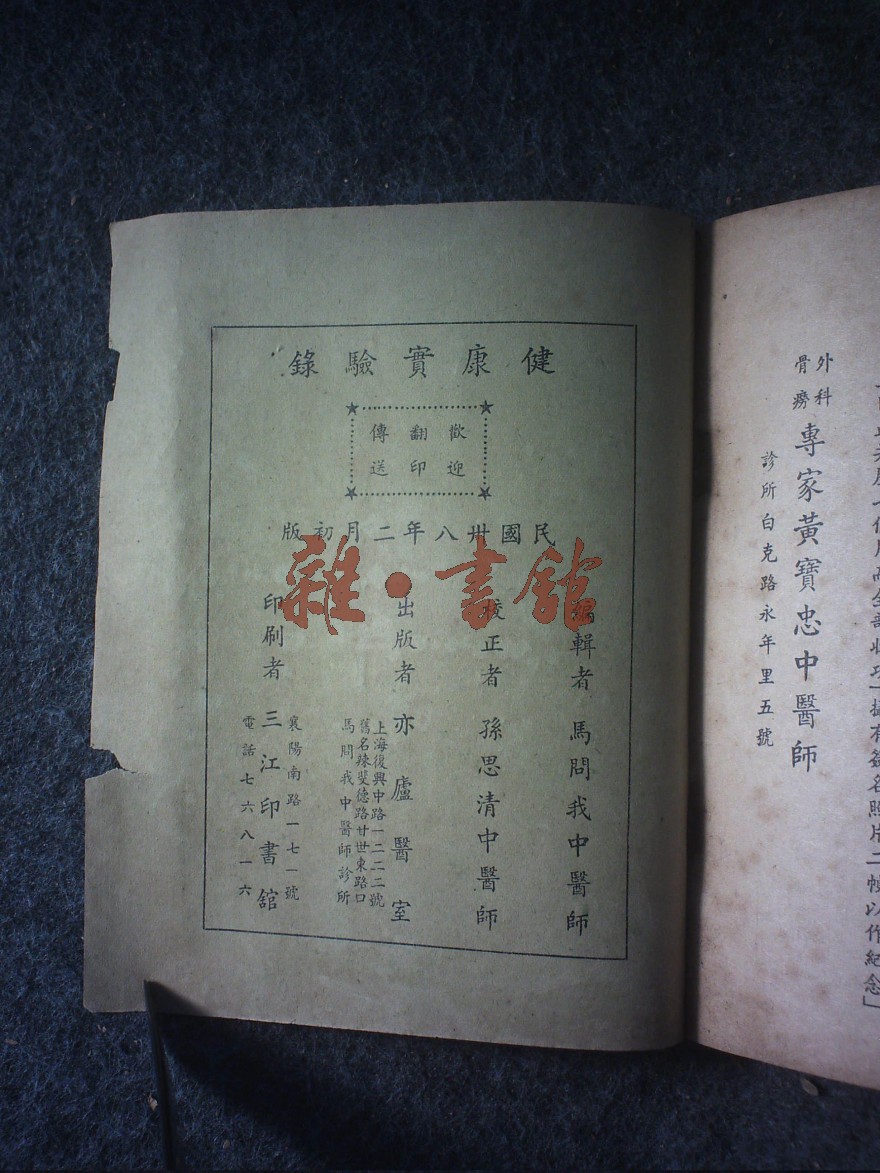 個月而全部收功攝有簽名照片二幀以作紀念」
外科
骨癆
專家黃寶忠中醫師
診所白克路永年里五號
健康實驗錄
歡迎
翻印
傳送
民國卅八年二月初版
編輯者 馬問我中醫師
校正者 孫思清中醫師
出版者 亦廬醫室
上海復興中路一二二二號
舊名辣斐德路廿世東路口
馬問我中醫師診所
印刷者 三江印書館
襄陽南路一七一號
電話七六八一六
雜·書館